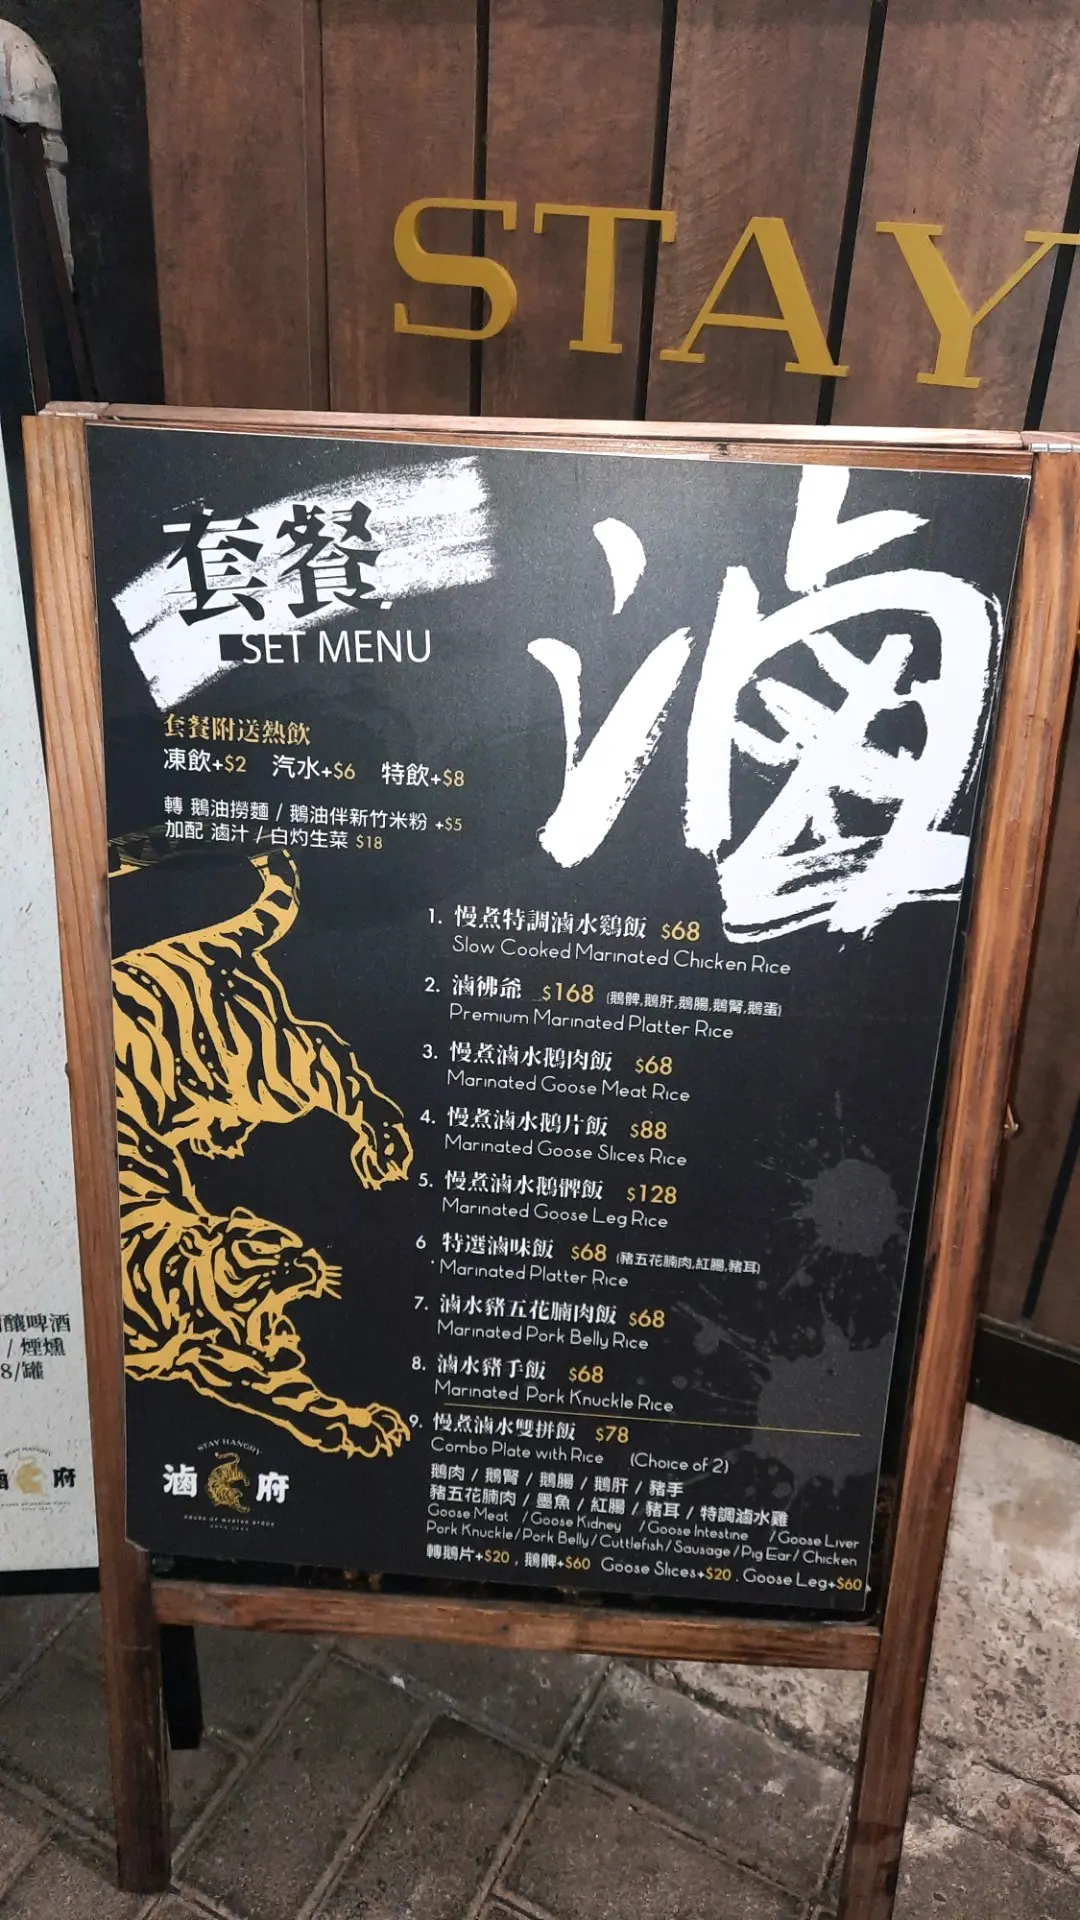 STAY
套餐
SET MENU
滷
套餐附送熱飲
凍飲+$2 汽水+$6 特飲+$8
轉 鵝油撈麵 / 鵝油伴新竹米粉 +$5
加配 滷汁 / 白灼生菜 $18
1. 慢煮特調滷水鷄飯 $68
Slow Cooked Marinated Chicken Rice
2. 滷彿爺 $168 (鵝髀,鵝肝,鵝腸,鵝腎,鵝蛋)
Premium Marinated Platter Rice
3. 慢煮滷水鵝肉飯 $68
Marinated Goose Meat Rice
4. 慢煮滷水鵝片飯 $88
Marinated Goose Slices Rice
5. 慢煮滷水鵝髀飯 $128
Marinated Goose Leg Rice
6. 特選滷味飯 $68 (豬五花腩肉,紅腸,豬耳)
Marinated Platter Rice
7. 滷水豬五花腩肉飯 $68
Marinated Pork Belly Rice
8. 滷水豬手飯 $68
Marinated Pork Knuckle Rice
9. 慢煮滷水雙拼飯 $78
Combo Plate with Rice (Choice of 2)
鵝肉 / 鵝腎 / 鵝腸 / 鵝肝 / 豬手
豬五花腩肉 / 墨魚 / 紅腸 / 豬耳 / 特調滷水雞
Goose Meat / Goose Kidney / Goose Intestine / Goose Liver
Pork Knuckle / Pork Belly / Cuttlefish / Sausage / Pig Ear / Chicken
轉鵝片+$20 , 鵝髀+$60 Goose Slices+$20 . Goose Leg+$60
STAY HANGRY
滷府
HOUSE OF MASTER STOCK
釀啤酒
/ 煙燻
8/罐
STAY HANGRY
府